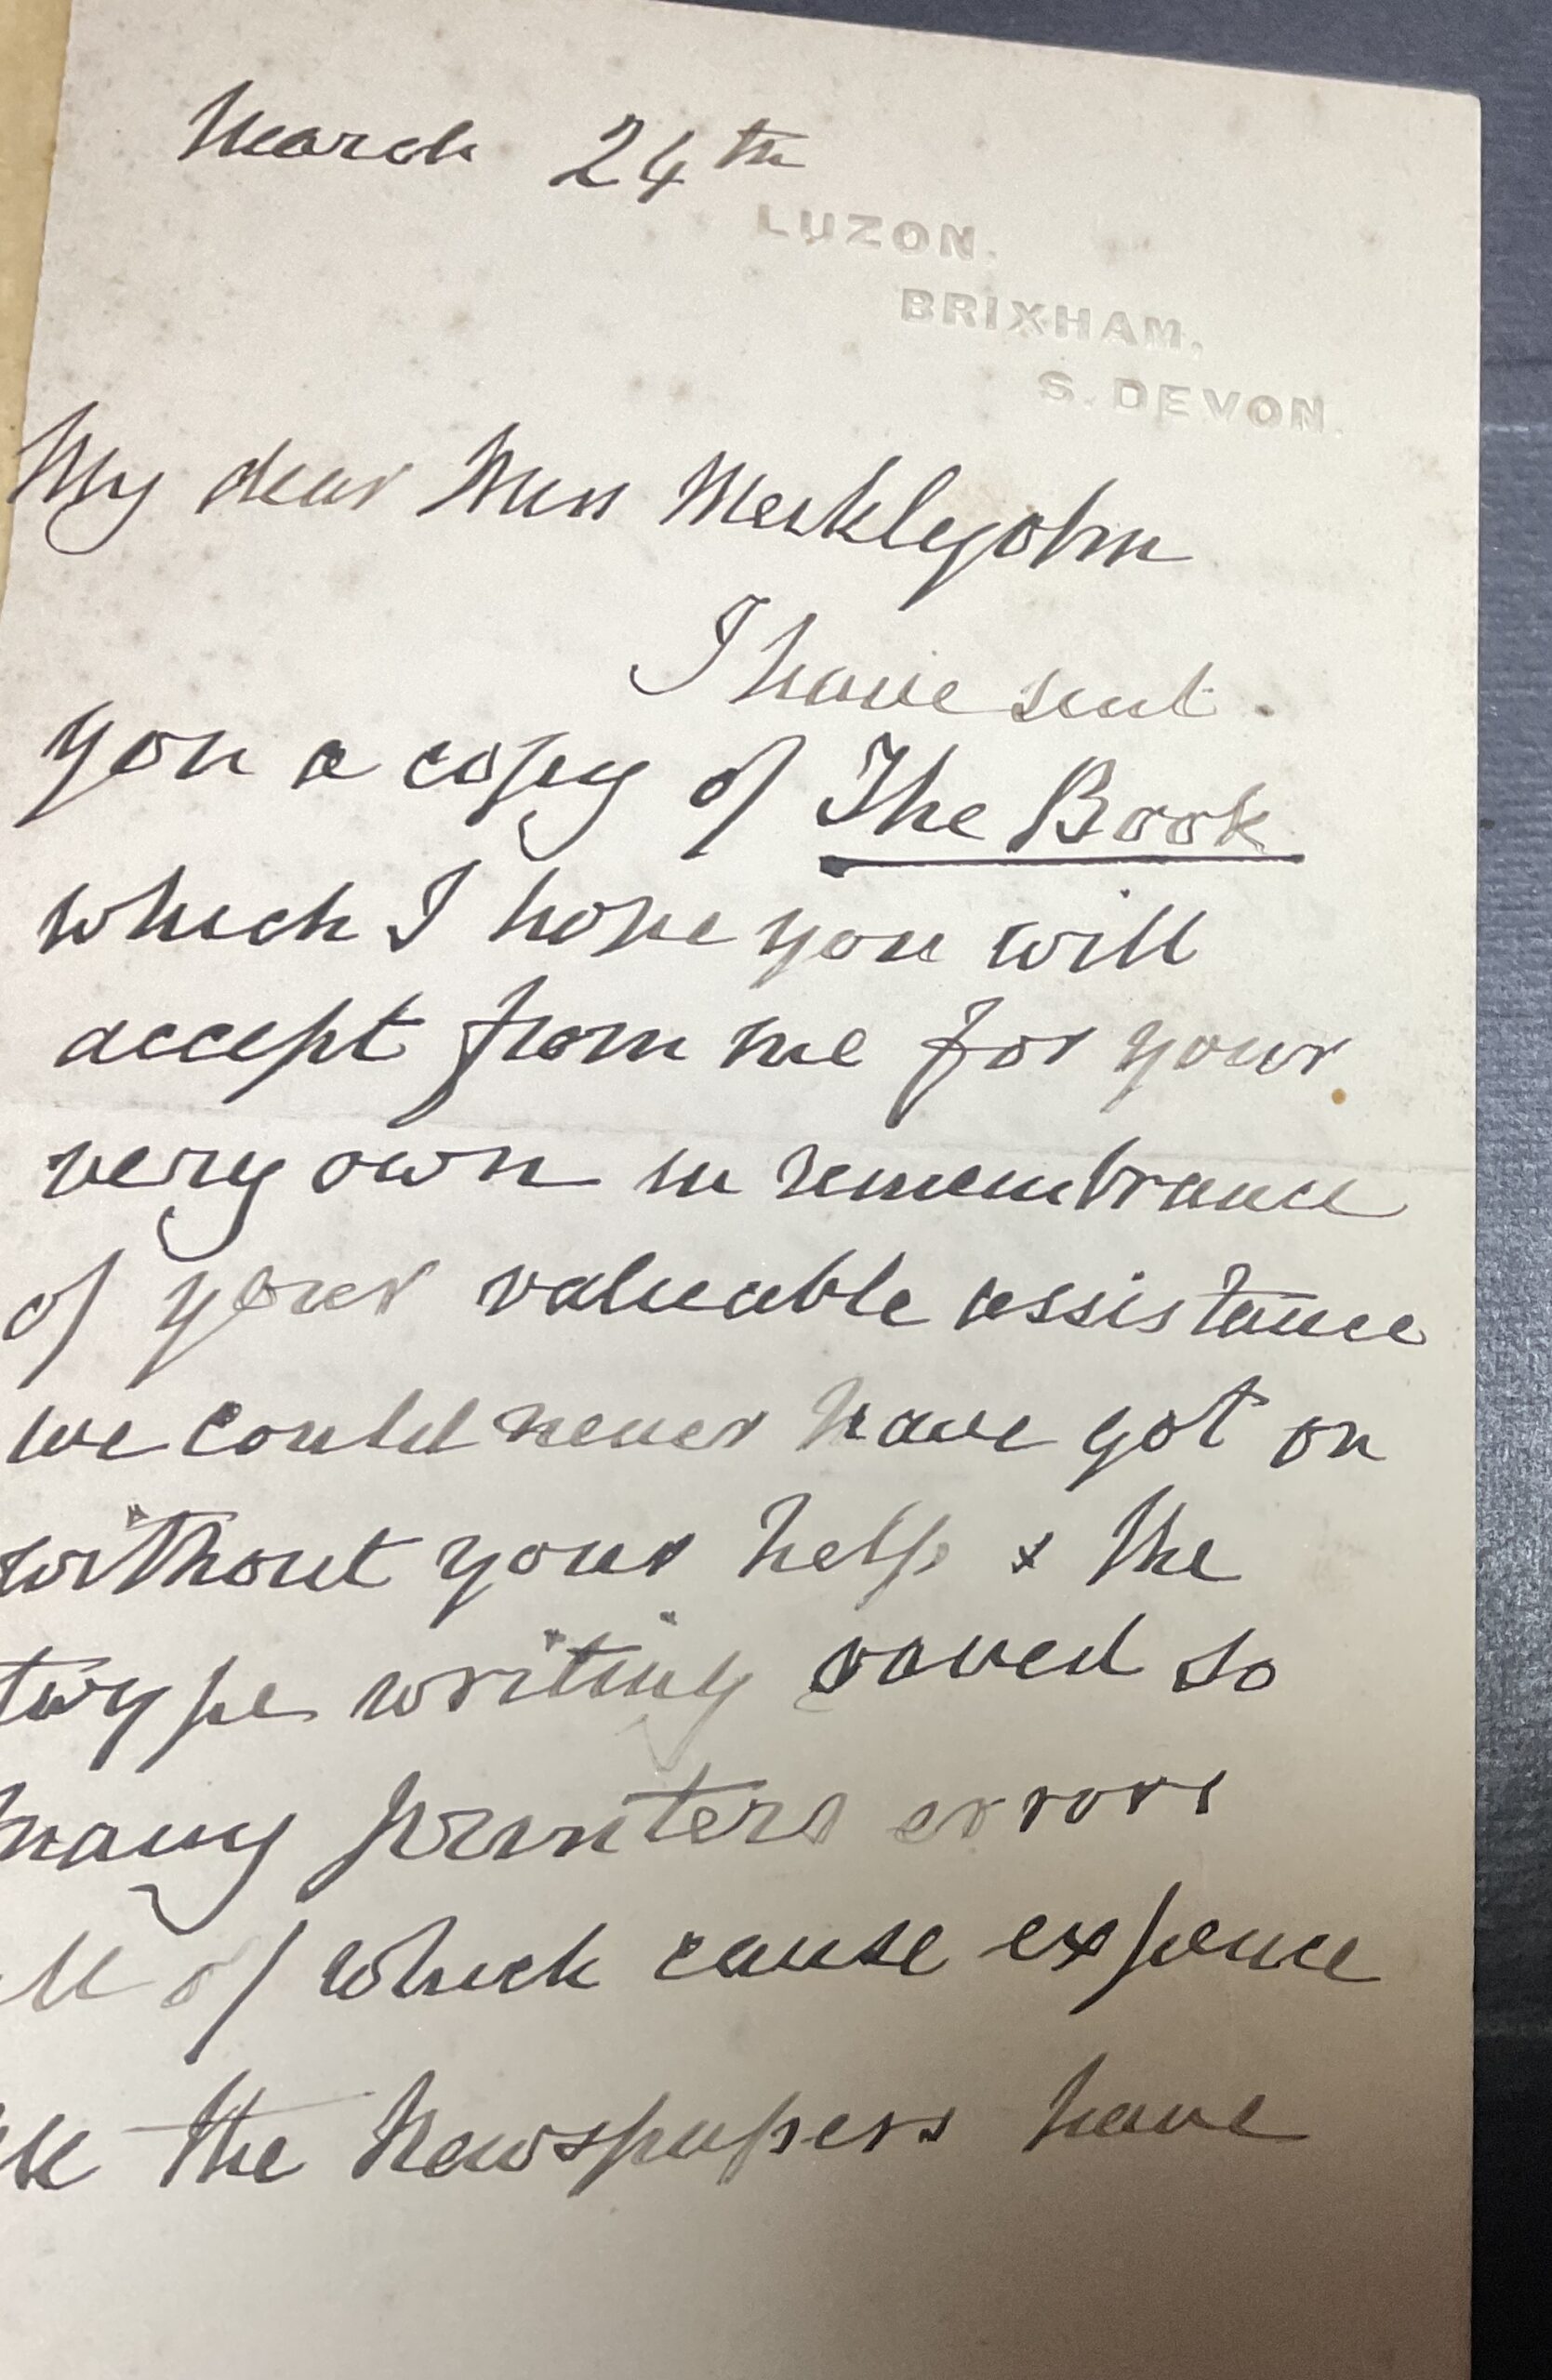 March 24th
LUZON.
BRIXHAM,
S. DEVON.
My dear Miss Meiklejohn
I have sent
you a copy of The Book
which I hope you will
accept from me for your
very own in remembrance
of your valuable assistance
we could never have got on
without your help & the
type writing saved so
many printers errors
all of which cause expence
the Newspapers have